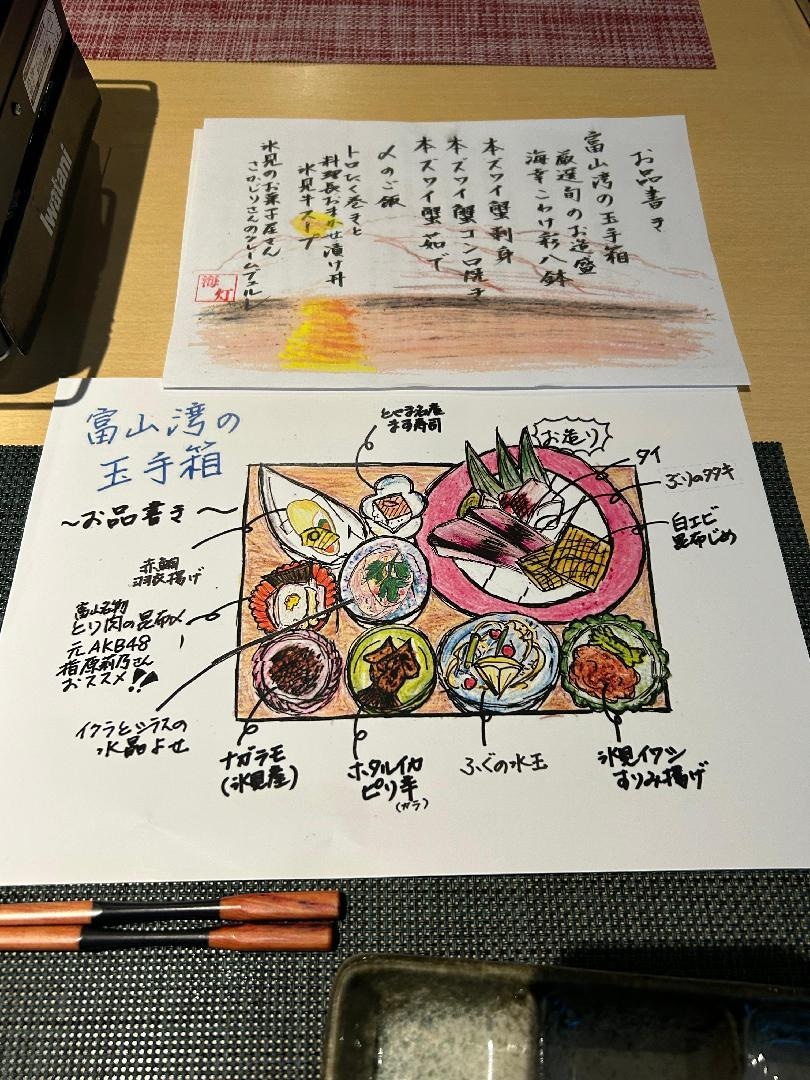 Iwatani
お品書き
富山湾の玉手箱
厳選旬のお造り盛
海幸こわけ彩八鉢
本ズワイ蟹刺身
本ズワイ蟹コンロ焼き
本ズワイ蟹茹で
〆のご飯
トロたく巻きと
料理長おまかせ漬け丼
氷見牛スープ
氷見のお菓子屋さん
さかじりさんのクレームブリュレ
海灯
富山湾の
玉手箱
~お品書き~
とやま名産
ます寿司
お造り
タイ
ぶりのタタキ
白エビ
昆布じめ
赤鯛
羽衣揚げ
富山名物
とり肉の昆布〆
元AKB48
指原莉乃さん
おススメ!!
イクラとシラスの
水晶よせ
ナガラモ
(氷見産)
ホタルイカ
ピリ辛
(カラ)
ふぐの水玉
氷見イワシ
すりみ揚げ